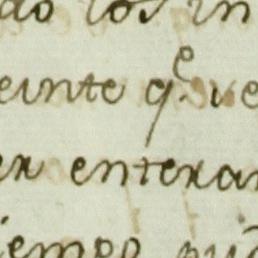 do los in
einte q.^e ve
er enteran
iempo